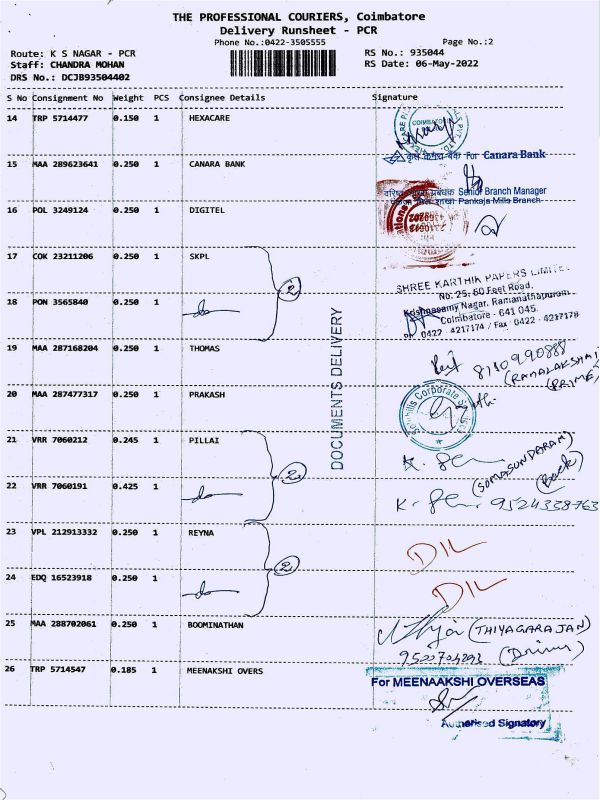 THE PROFESSIONAL COURIERS, Coimbatore
Delivery Runsheet - PCR
Phone No.:0422-3505555 Page No.:2
Route: K S NAGAR - PCR RS No.: 935044
Staff: CHANDRA MOHAN RS Date: 06-May-2022
DRS No.: DCJB93504402
S No Consignment No Weight PCS Consignee Details Signature
14 TRP 5714477 0.150 1 HEXACARE
COIMBATORE
कृते केनरा बैंक For Canara Bank
15 MAA 289623641 0.250 1 CANARA BANK
Senior Branch Manager
Pankaja Mills Branch
16 POL 3249124 0.250 1 DIGITEL
17 COK 23211206 0.250 1 SKPL
2
SHREE KARTHIK PAPERS LIMITED
No. 25, 60 Feet Road,
18 PON 3565840 0.250 1 do
Krishnasamy Nagar, Ramanathapuram
Coimbatore - 641 045.
Ph 0422 - 4217174 / Fax 0422 - 4217178
DOCUMENTS DELIVERY
19 MAA 287168204 0.250 1 THOMAS
(RAMALAKSHAI
(PRIME)
20 MAA 287477317 0.250 1 PRAKASH
Corporate
21 VRR 7060212 0.245 1 PILLAI
2
(SOMASUNDARAM)
22 VRR 7060191 0.425 1 do
9524338763
23 VPL 212913332 0.250 1 REYNA
DIL
2
24 EDQ 16523918 0.250 1 do
DIL
25 MAA 288702061 0.250 1 BOOMINATHAN
(THIYAGARAJAN)
26 TRP 5714547 0.185 1 MEENAKSHI OVERS
For MEENAAKSHI OVERSEAS
Authorised Signatory